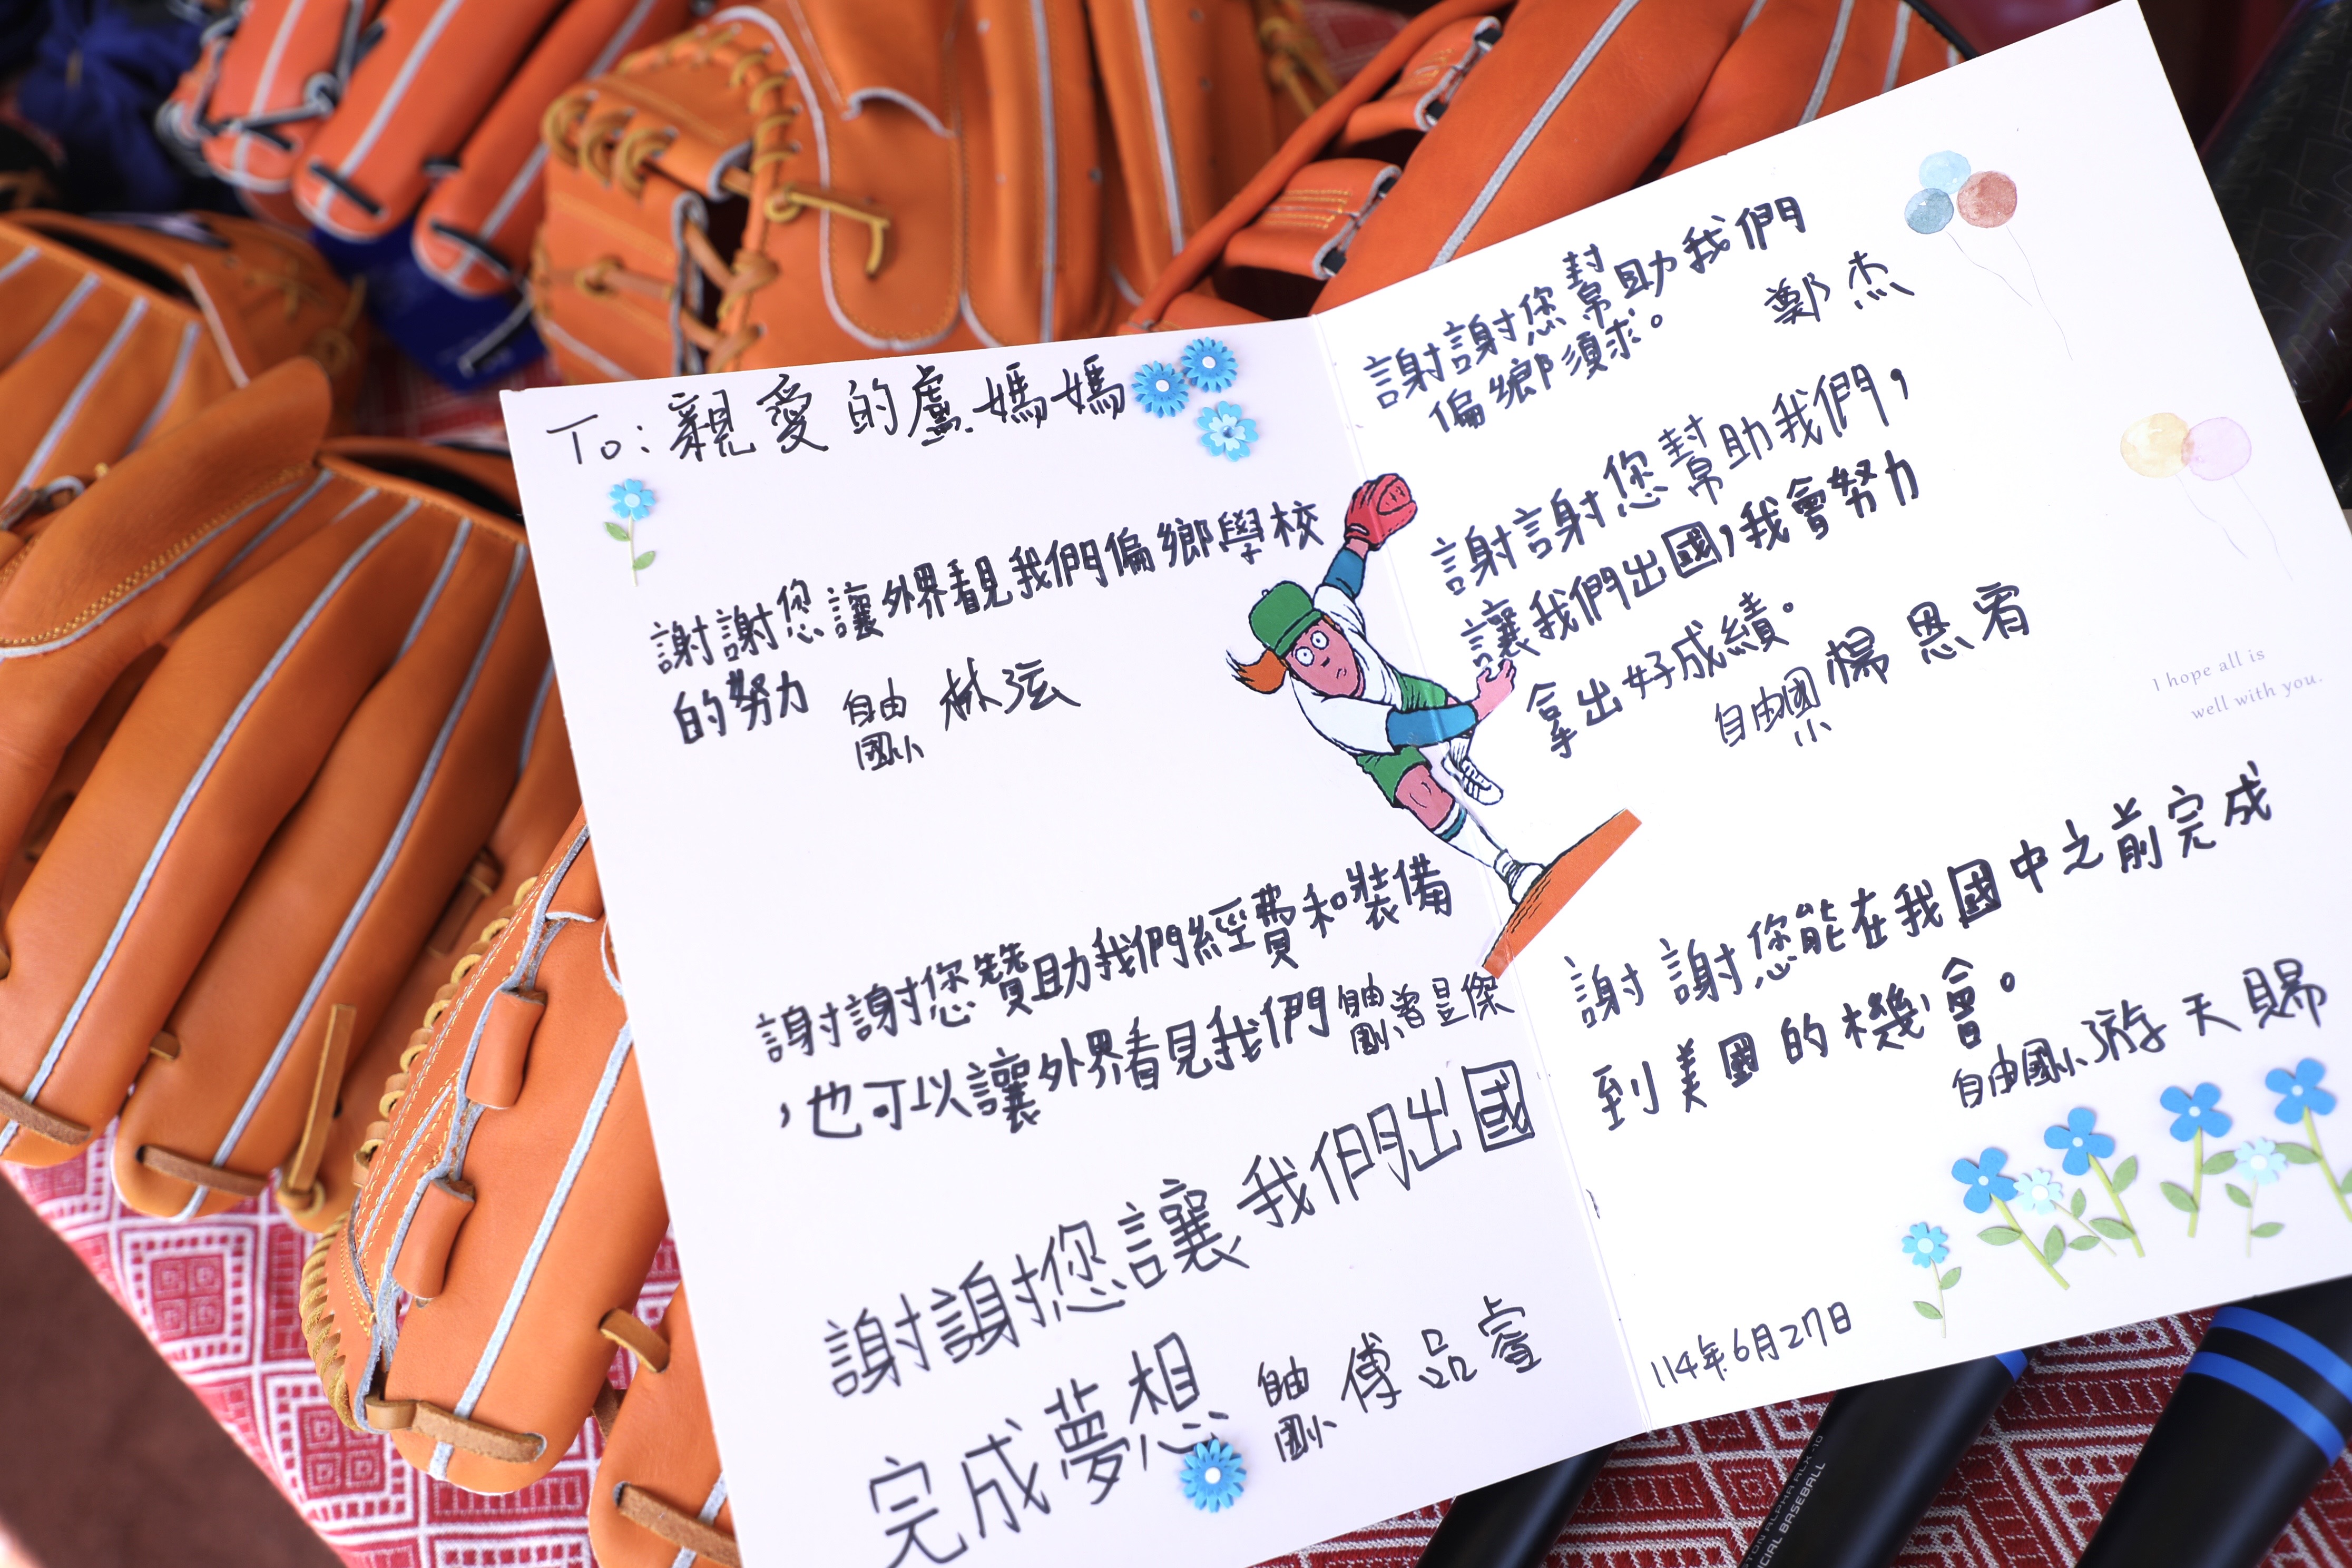 To:親愛的盧媽媽
謝謝您讓外界看見我們偏鄉學校
的努力
自由
國小
林泫
謝謝您贊助我們經費和裝備
，也可以讓外界看見我們
自由
國小
曾昱傑
謝謝您讓我們出國
完成夢想
自由
國小
傅品睿
謝謝您幫助我們
偏鄉須求。
鄭杰
謝謝您幫助我們，
讓我們出國，我會努力
拿出好成績。
自由國小
楊恩宥
謝謝您能在我國中之前完成
到美國的機會。
自由國小游天賜
I hope all is
well with you.
114年6月27日
ALPHA ALX-10
CIAL BASEBALL